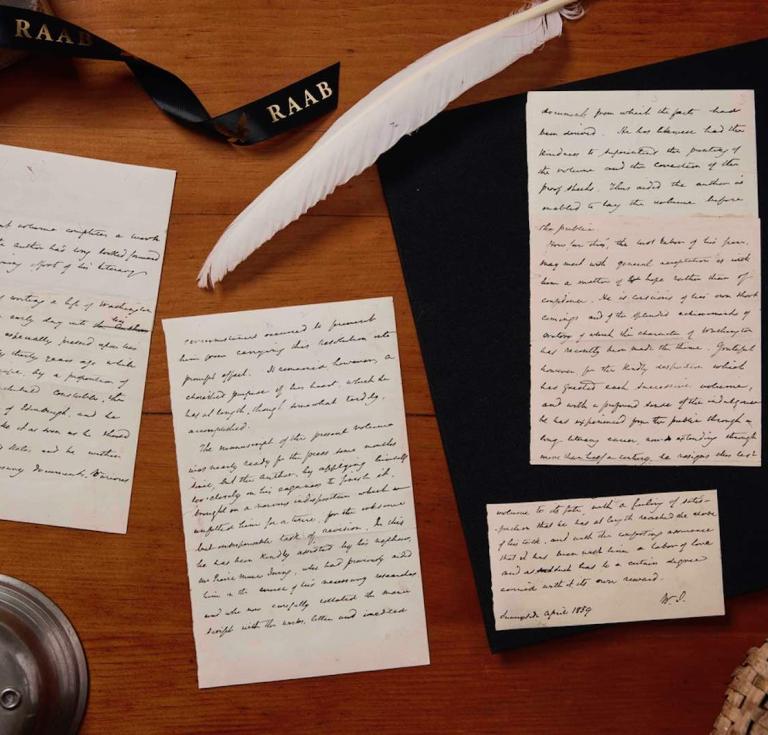 RAAB
RAAB
volume completes a work
author has long looked forward
effort of his literary
writing a life of Washington
early day into his
especially pressed upon his
thirty years ago while
by a proposition of
Constable, the
of Edinburgh, and he
it as soon as he should
States, and be within
documents. Various
circumstances occurred to prevent
him from carrying this resolution into
prompt effect. It remained however, a
cherished purpose of his heart, which he
has at length, though somewhat tardily,
accomplished.
The manuscript of the present volume
was nearly ready for the press some months
since, but the author, by applying himself
too closely in his eagerness to finish it,
brought on a nervous indisposition which
unfitted him for a time, for the irksome
but indispensable task of revision. In this
he has been kindly assisted by his nephew,
Mr Pierre Munro Irving, who had previously aided
him in the course of his necessary researches
and who now carefully collated the manu
script with the works, letters and inedited
documents from which the facts had
been derived. He has likewise had the
kindness to superintend the printing of
the volume and the correction of the
proof sheets. Thus aided the author is
enabled to lay the volume before
the public.
How far this, the last labor of his pen,
may meet with general acceptation is with
him a matter of hope rather than of
confidence. He is conscious of his own short
comings and of the splendid achievements of
orators of which the character of Washington
has recently been made the theme. Grateful
however for the kindly disposition which
has greeted each successive volume,
and with a profound sense of the indulgence
he has experienced from the public through a
long literary career, now extending through
more than half a century, he resigns this last
volume to its fate, with a feeling of satis-
faction that he has at length reached the close
of his task, and with the comforting assurance
that it has been with him a labor of love
and as such has to a certain degree
carried with it its own reward.
W. I.
Sunnyside April 1859